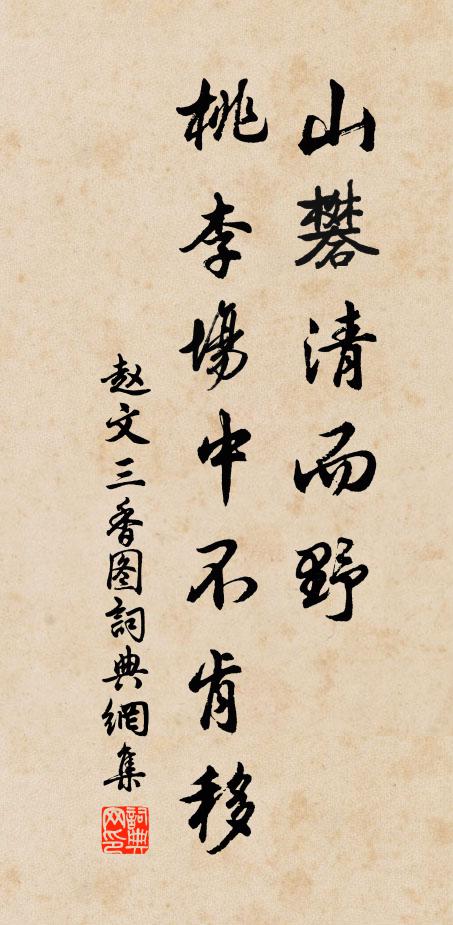 山礬清而野
桃李場中不肯移
赵文三香图詞典網集
詞典网印